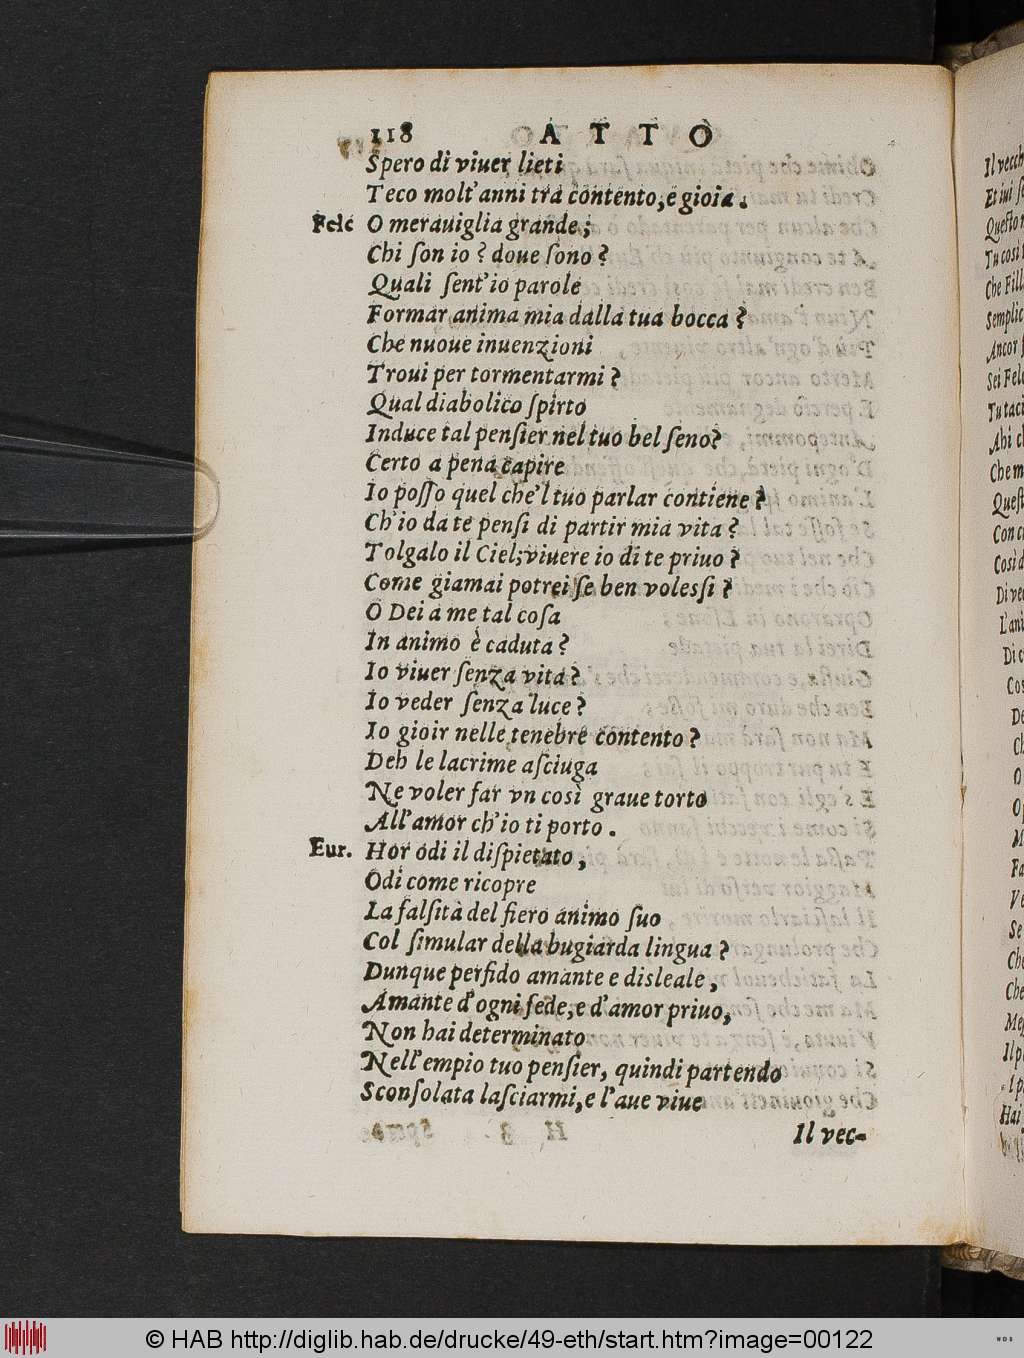 118 ATTO
Spero di viuer lieti
Teco molt'anni tra contento, e gioia.
Fele O merauiglia grande;
Chi ſon io? doue ſono?
Quali ſent'io parole
Formar anima mia dalla tua bocca?
Che nuoue inuenzioni
Troui per tormentarmi?
Qual diabolico ſpirto
Induce tal penſier nel tuo bel ſeno?
Certo a pena capire
Io poſſo quel che'l tuo parlar contiene?
Ch'io da te penſi di partir mia vita?
Tolgalo il Ciel; viuere io di te priuo?
Come giamai potrei ſe ben volesſi?
O Dei a me tal coſa
In animo è caduta?
Io viuer ſenza vita?
Io veder ſenza luce?
Io gioir nelle tenebre contento?
Deh le lacrime aſciuga
Ne voler far vn così graue torto
All'amor ch'io ti porto.
Eur. Hor odi il diſpietato,
Odi come ricopre
La falſità del fiero animo ſuo
Col ſimular della bugiarda lingua?
Dunque perfido amante e disleale,
Amante d'ogni fede, e d'amor priuo,
Non hai determinato
Nell'empio tuo penſier, quindi partendo
Sconſolata laſciarmi, e l'aue viue
Il vec-
Il vecch
Et iui ſ
Queſto
Tu così
Che Fill
Semplic
Ancor
Sei Fele
Tu taci
Ahi c
Che m
Queſt
Con c
Così d
Di ve
L'ani
Di c
Coſ
De
Ch
O
M
Fa
Ve
Se
Che
Che
Il p
Hai
© HAB http://diglib.hab.de/drucke/49-eth/start.htm?image=00122